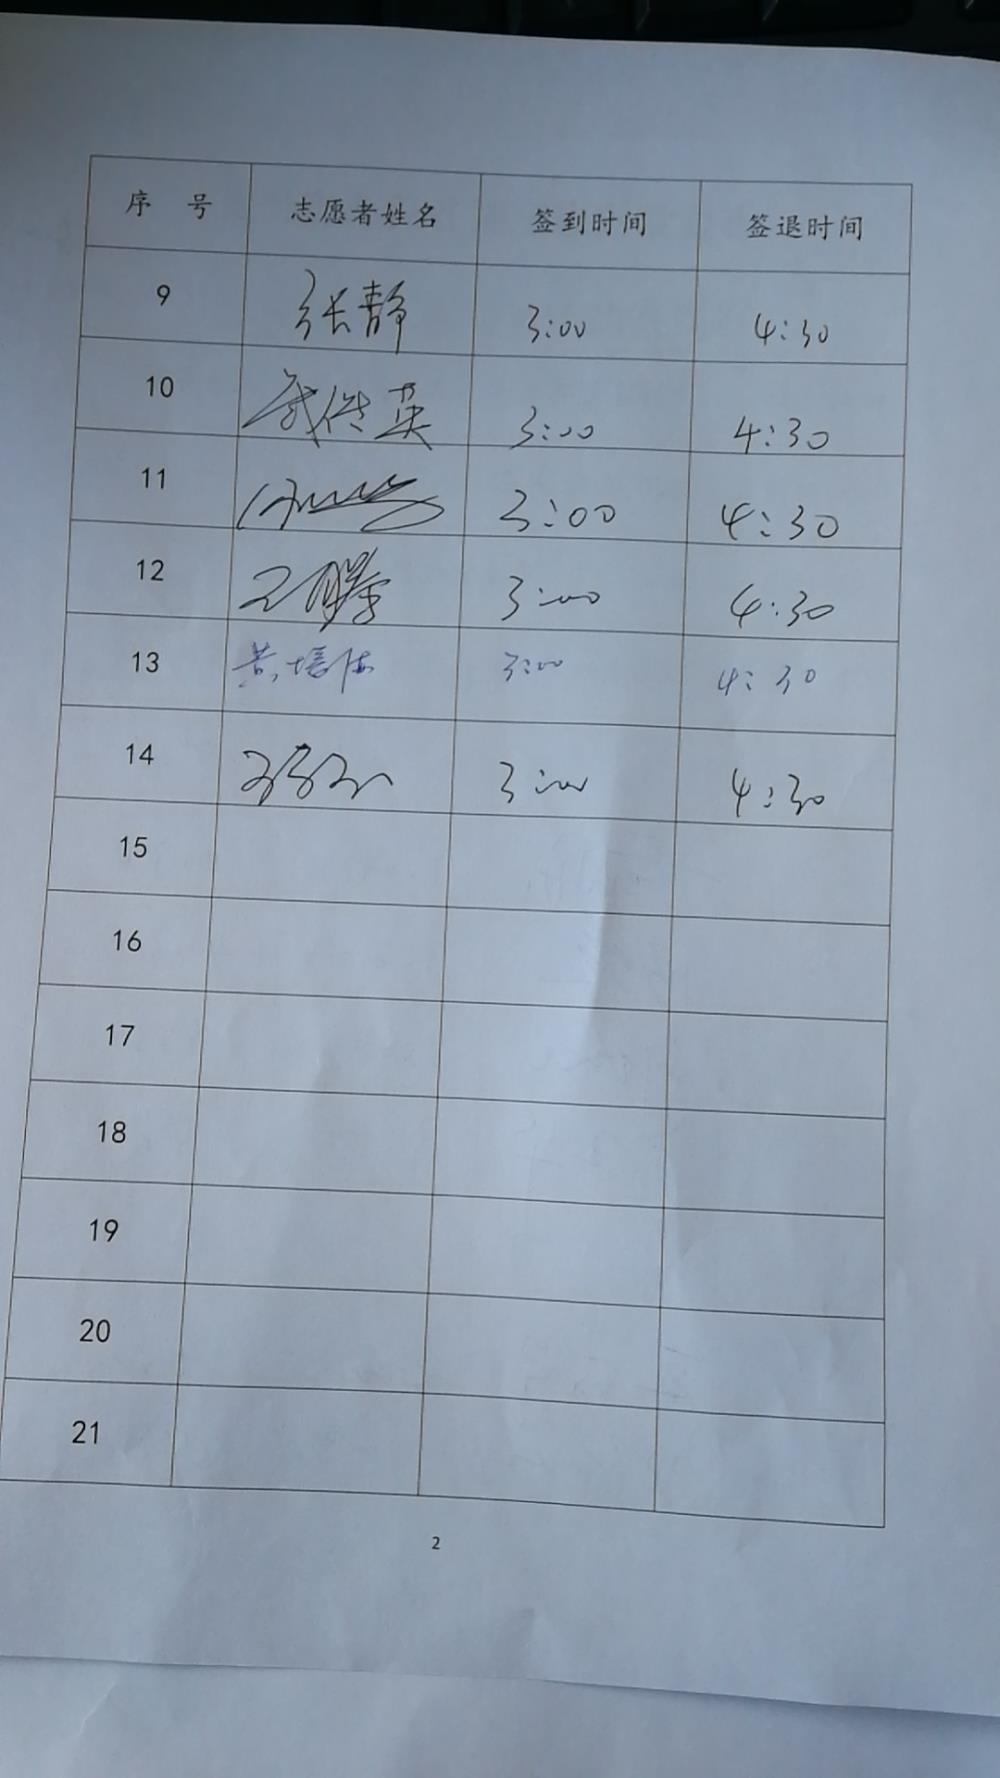 序 号 志愿者姓名 签到时间 签退时间
9 张静 3:00 4:30
10 武俊英 3:00 4:30
11 3:00 4:30
12 王腾 3:00 4:30
13 黄 3:00 4:30
14 3:00 4:30
15
16
17
18
19
20
21
2